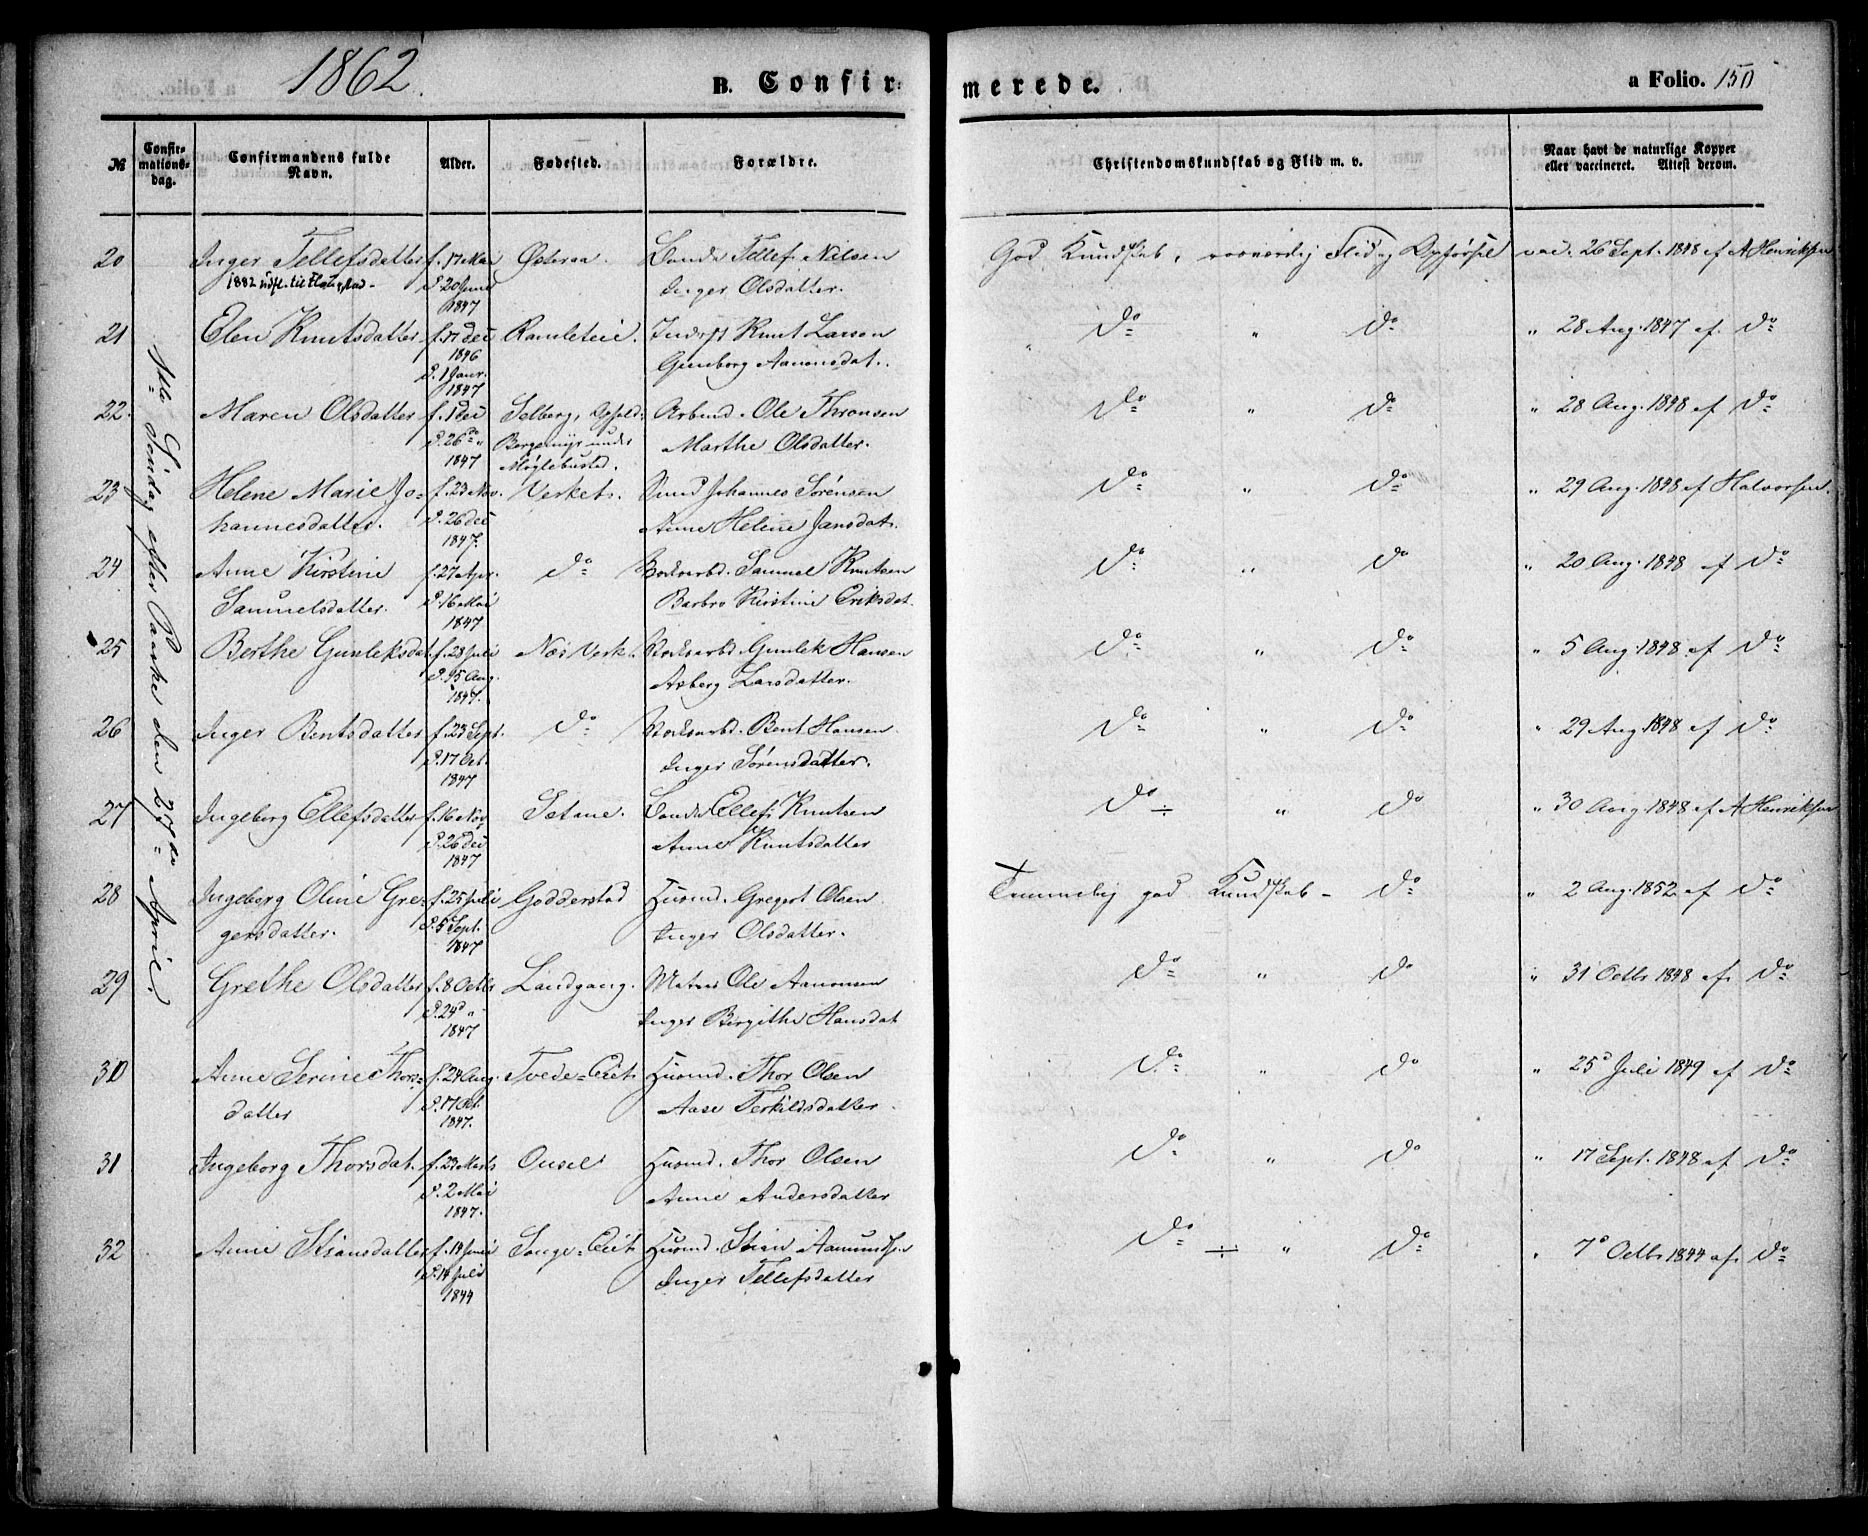 1862.
B. Confirmerede.
a Folio. 150
№
Confirmationsdag.
Confirmandens fulde Navn.
Alder.
Fødested.
Forældre.
Christendomskundskab og Flid m. v.
Naar havt de naturlige Kopper eller vaccineret. Attest derom.
1ste Søndag efter Paaske den 27de April.
20 Inger Tellefsdatter f. 17 Mai Østeraa. Gaardm. Tellef Nilsen God Kundskab, roesværdig Flid og Opførsel vac. 26 Sept. 1848 af A Henriksen
1882 udfl. til Flatestad - d. 20 Juni Inger Olsdatter.
1847
21 Elen Knutsdatter f. 17 Dec Ramleteie. Inderst Knut Larsen do " do " 28 Aug. 1847 af. do
1846 Gunborg Aanonsdat.
d. 1 Janr.
1847
22. Maren Olsdatter f. 1 Dec Selberg, Ophold: Arbmd. Ole Thronsen do " do " 28 Aug. 1848 af do
d. 26 do " Bergemyr under Marthe Olsdatter.
1847 Møglebustad.
23 Helene Marie Jo= f. 23 Nov. Verket. Smed Johannes Sørensen do " do " 29 Aug. 1848 af Halvorsen.
hannesdatter. d. 26 Dec Anne Helene Jansdat.
1847.
24 Anne Kirstine f. 27 Apr. do Verksarbd. Samuel Knutsen do " do " 20 Aug. 1848 af do
Samuelsdatter. d. 16 Mai Barbro Kirstine Eriksdat.
1847
25 Berthe Gunleksdat. f. 28 Juli Næs Verk. Verksarbd. Gunlek Hansen do " do " 5 Aug. 1848 af do
d. 15 Aug. Asberg Larsdatter.
1847.
26 Inger Bentsdatter f. 23 Sept. do Verksarbd. Bent Hansen. do " do " 29 Aug. 1848 af do
d. 17 Oct. Inger Sørensdatter.
1847
27 Ingeborg Ellefsdatter f. 16 Nov Sætane. Gaardm. Ellef Knutsen do ÷ " do " 30 Aug. 1848 af A Henriksen
d. 26 Dec Anne Knutsdatter
1847
28 Ingeborg Oline Gre= f. 25 Juli Godderstad Husmd. Gregert Olsen Temmelig god Kundskab - do " 2 Aug. 1852 af do
gersdatter. d. 5 Sept. Inger Olsdatter.
1847
29 Grethe Olsdatter f. 8 Octbr Landgang. Matros Ole Aanonsen do " do " 31 Octbr 1848 af. do
d. 24 d " Inger Birgithe Hansdat
1847
30 Anne Serine Thors= f. 24 Aug. Tvede=Eiet Husmd. Thor Olsen do " do " 25 Juli 1849 af do
datter d. 17 Oct. Aase Terkildsdatter
1847.
31 Ingeborg Thorsdat. f. 23 Marts Ousel Husmd. Thor Olsen do " do " 17 Sept. 1848 af do
d. 2 Mai Anne Andersdatter
1847.
32 Anne Stiansdatter f. 19 Juni Songe=Eiet Husmd. Stian Aamundsen do ÷ " do " 7 Octbr 1844 af. do
d. 14 Juli Inger Tellefsdatter
1844